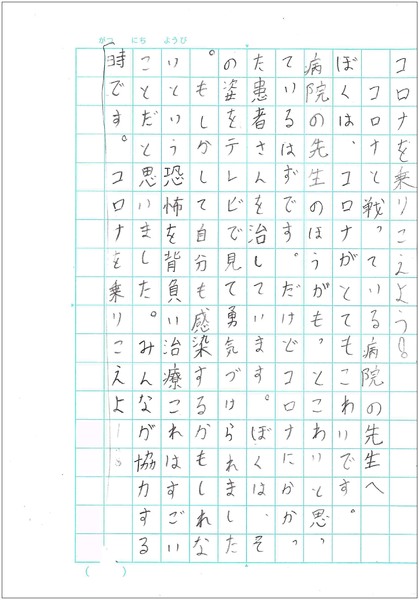 がつ にち ようび
コロナを乗りこえよう。
コロナと戦っている病院の先生へ
ぼくは、コロナがとてもこわいです。
病院の先生のほうがもっとこわいと思っ
ているはずです。だけどコロナにかかっ
た患者さんを治しています。ぼくは、そ
の姿をテレビで見て勇気づけられました
。もしかして自分も感染するかもしれな
いという恐怖を背負い治療これはすごい
ことだと思いました。みんなが協力する
時です。コロナを乗りこえよ